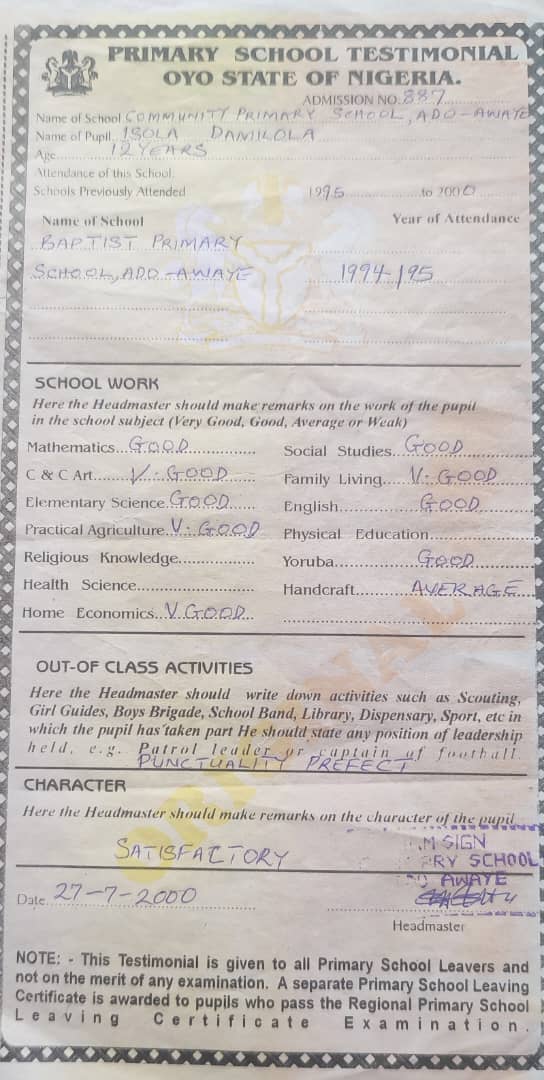 PRIMARY SCHOOL TESTIMONIAL
OYO STATE OF NIGERIA.
ADMISSION NO. 887
Name of School COMMUNITY PRIMARY SCHOOL, ADO-AWAYE
Name of Pupil ISOLA DAMILOLA
Age 12 YEARS
Attendance of this School.
Schools Previously Attended 1995 to 2000
Name of School Year of Attendance
BAPTIST PRIMARY
SCHOOL, ADO-AWAYE 1994-195
SCHOOL WORK
Here the Headmaster should make remarks on the work of the pupil
in the school subject (Very Good, Good, Average or Weak)
Mathematics...GOOD Social Studies GOOD
C & C Art...V. GOOD Family Living...V. GOOD
Elementary Science GOOD English GOOD
Practical Agriculture V. GOOD Physical Education
Religious Knowledge Yoruba GOOD
Health Science Handcraft AVERAGE
Home Economics V. GOOD
OUT-OF CLASS ACTIVITIES
Here the Headmaster should write down activities such as Scouting,
Girl Guides, Boys Brigade, School Band, Library, Dispensary, Sport, etc in
which the pupil has taken part He should state any position of leadership
held, e.g. Patrol leader or captain of football.
PUNCTUALITY PREFECT
CHARACTER
Here the Headmaster should make remarks on the character of the pupil
SATISFACTORY
SIGN
SCHOOL
AWAYE
Date 27-7-2000
Headmaster
ORIGINAL
NOTE: - This Testimonial is given to all Primary School Leavers and
not on the merit of any examination. A separate Primary School Leaving
Certificate is awarded to pupils who pass the Regional Primary School
Leaving Certificate Examination.